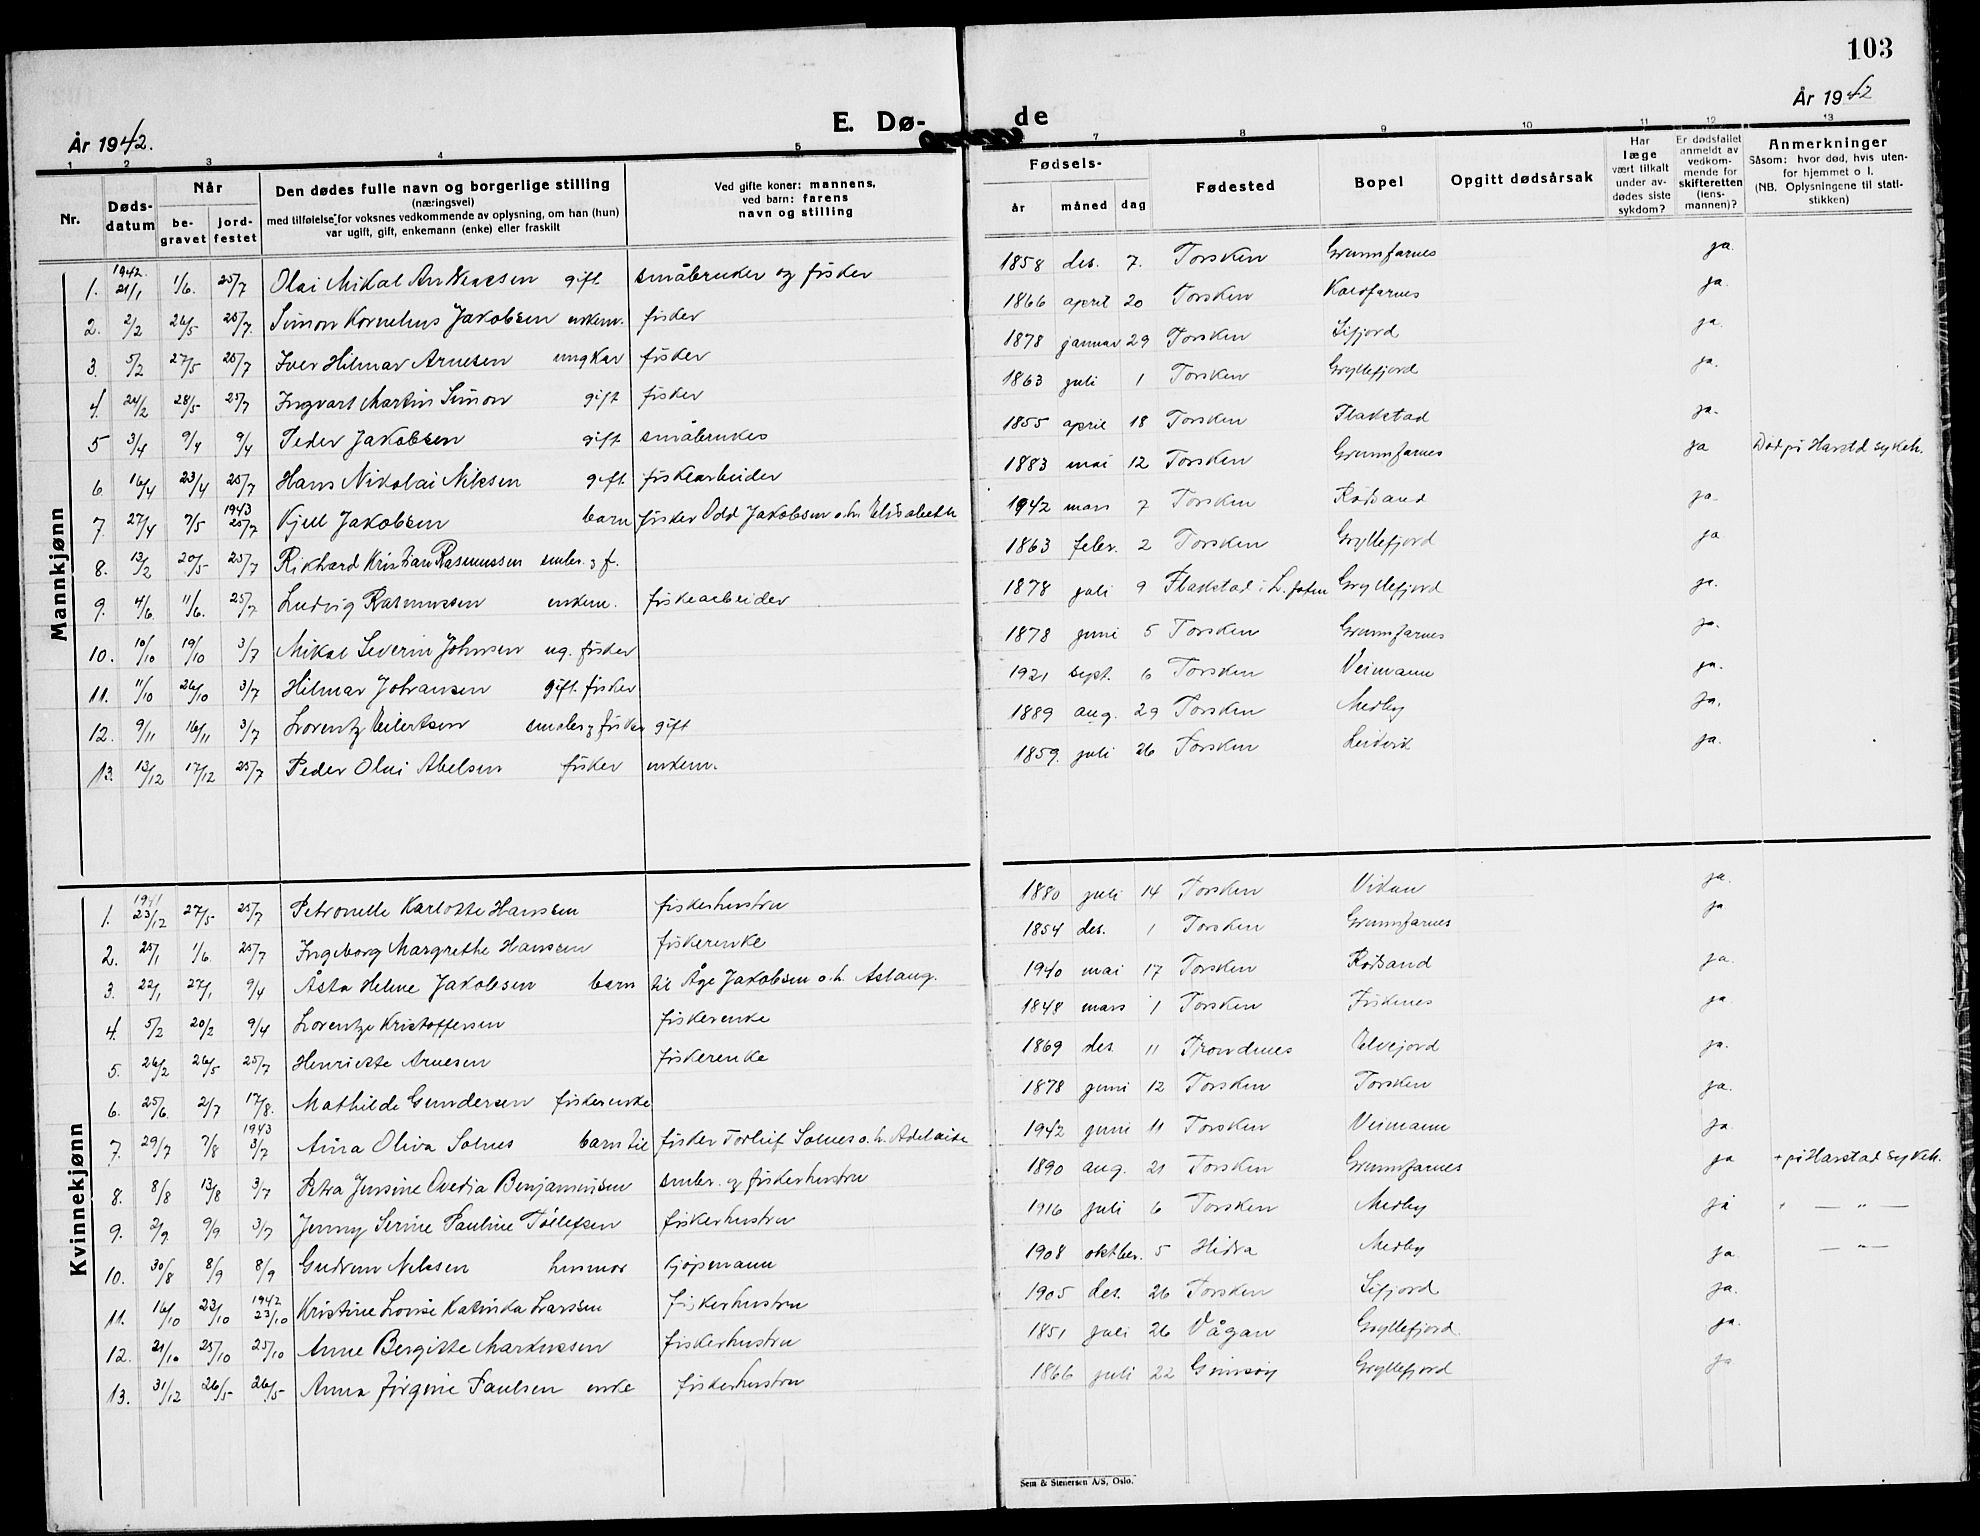 103
År 1942.
E. Dø-
de
År 1942
1 2 3 4 5 7 8 9 10 11 12 13
Nr.
Døds-
datum
Når
be-
gravet
jord-
festet
Den dødes fulle navn og borgerlige stilling
(næringsvei)
med tilføielse for voksnes vedkommende av oplysning, om han (hun)
var ugift, gift, enkemann (enke) eller fraskilt
Ved gifte koner: mannens,
ved barn: farens
navn og stilling
Fødsels-
år måned dag
Fødested
Bopel
Opgitt dødsårsak
Har
læge
vært tilkalt
under av-
dødes siste
sykdom?
Er dødsfallet
anmeldt av
vedkom-
mende for
skifteretten
(lens-
mannen)?
Anmerkninger
Såsom: hvor død, hvis uten-
for hjemmet o l.
(NB. Oplysningene til stati-
stikken)
Mannkjønn
1. 1942 21/1 1/6. 25/7 Olai Mikal Andreassen gift småbruker og fisker 1858 des. 7. Torsken Grunnfarnes ja.
2. 2/2 26/5 25/7. Simon Kornelius Jakobsen enkem. fisker 1866 april 20 Torsken Kaldfarnes ja.
3. 5/2 27/5 25/7 Iver Hilmar Arnesen ungkar fisker 1878 januar 29 Torsken Sifjord ja.
4. 24/2 28/5 25/7 Ingvart Martin Simon gift fisker 1863 juli 1 Torsken Gryllefjord ja.
5 3/4 9/4 9/4 Peder Jakobsen gift småbruker 1855 april 18 Torsken Flakstad ja.
6 16/4 23/4 25/7 Hans Nikolai Nilsen gift. fiskearbeider 1883 mai 12 Torsken Grunnfarnes ja Død på Harstd sykeh.
7. 27/4 7/5 1943 25/7 Kjell Jakobsen barn fisker Odd Jakobsen o.h. Elisabeth 1942 mars 7 Torsken Rødsand ja.
8. 13/2 20/5 25/7 Rikhard Kristian Rasmussen småbr. og f. 1863 febr. 2 Torsken Gryllefjord ja
9. 4/6 11/6. 25/7 Ludvig Rasmussen enkem. fiskearbeider 1878 juli 9 Flakstad i Lofoten Gryllefjord ja.
10. 10/10 19/10 3/7 Mikal Severin Johnsen ug. fisker 1878 juni 5 Torsken Grunnfarnes ja.
11. 11/10 26/10 3/7 Hilmar Johansen gift. fisker 1921 sept. 6 Torsken Veimann ja.
12. 9/11 16/11 3/7 Lorentz Eilertsen småbr og fisker gift 1889 aug. 29 Torsken Medby ja.
13. 13/12 17/12 25/7 Peder Olai Abelsen fisker enkem. 1859. juli 26 Torsken ja.
Kvinnekjønn
1. 1941 23/12 27/5 25/7 Petronelle Karlotte Hanssen fiskerhustru 1880 juli 14 Torsken Vikan ja.
2. 25/1 1/6. 25/7 Ingeborg Margrethe Hanssen fiskerenke 1854 des. 1 Torsken Grunnfarnes ja
3. 22/1 27/1 9/4 Åsta Helene Jakobsen barn til Åge Jakobsen o.h. Aslaug. 1940 mai 17 Torsken Rødsand ja.
4. 5/2 20/2 9/4 Lorentze Kristoffersen fiskerenke 1848 mars 1 Torsken Fiskenes ja
5. 26/2 26/5 25/7 Henriette Arnesen fiskerenke 1869 des. 11 Trondenes ja.
6. 25/6. 2/7 17/8. Mathilde Gundersen fiskerenke 1878 juni 12 Torsken Torsken ja.
7. 29/7 7/8 1943 3/7 Anna Oliva Solnes barn til fisker Torleif Solnes o.h. Adelaide 1942 juni 11 Torsken Veimann ja.
8. 8/8 13/8 3/7 Petra Jensine Ovedia Benjaminsen småbr. og fiskerhustru 1890 aug. 21 Torsken Grunnfarnes ja + på Harstad sykeh.
9. 2/9 9/9 3/7 Jenny Serine Pauline Tollefsen fiskerhustru 1916 juli 6 Torsken Medby ja " — " —
10. 30/8 8/9 8/9 Gudrun Nilsen husmor kjøpmann 1908 oktber. 5 Hidra Medby ja. — " —
11. 16/10 23/10 1942 23/10 Kristine Lovise Katinka Larssen fiskerhustru 1905 des. 26 Torsken Sifjord ja.
12. 21/10 25/10 25/10 Anne Bergitte Markussen fiskerhustru 1851 juli 26 Vågan Gryllefjord. ja.
13. 31/12 26/5 26/5 Anna Jørgine Paulsen enke fiskerhustru 1866 juli 22 Gimsøy Gryllefjord ja
Sem & Stenersen A/S, Oslo.